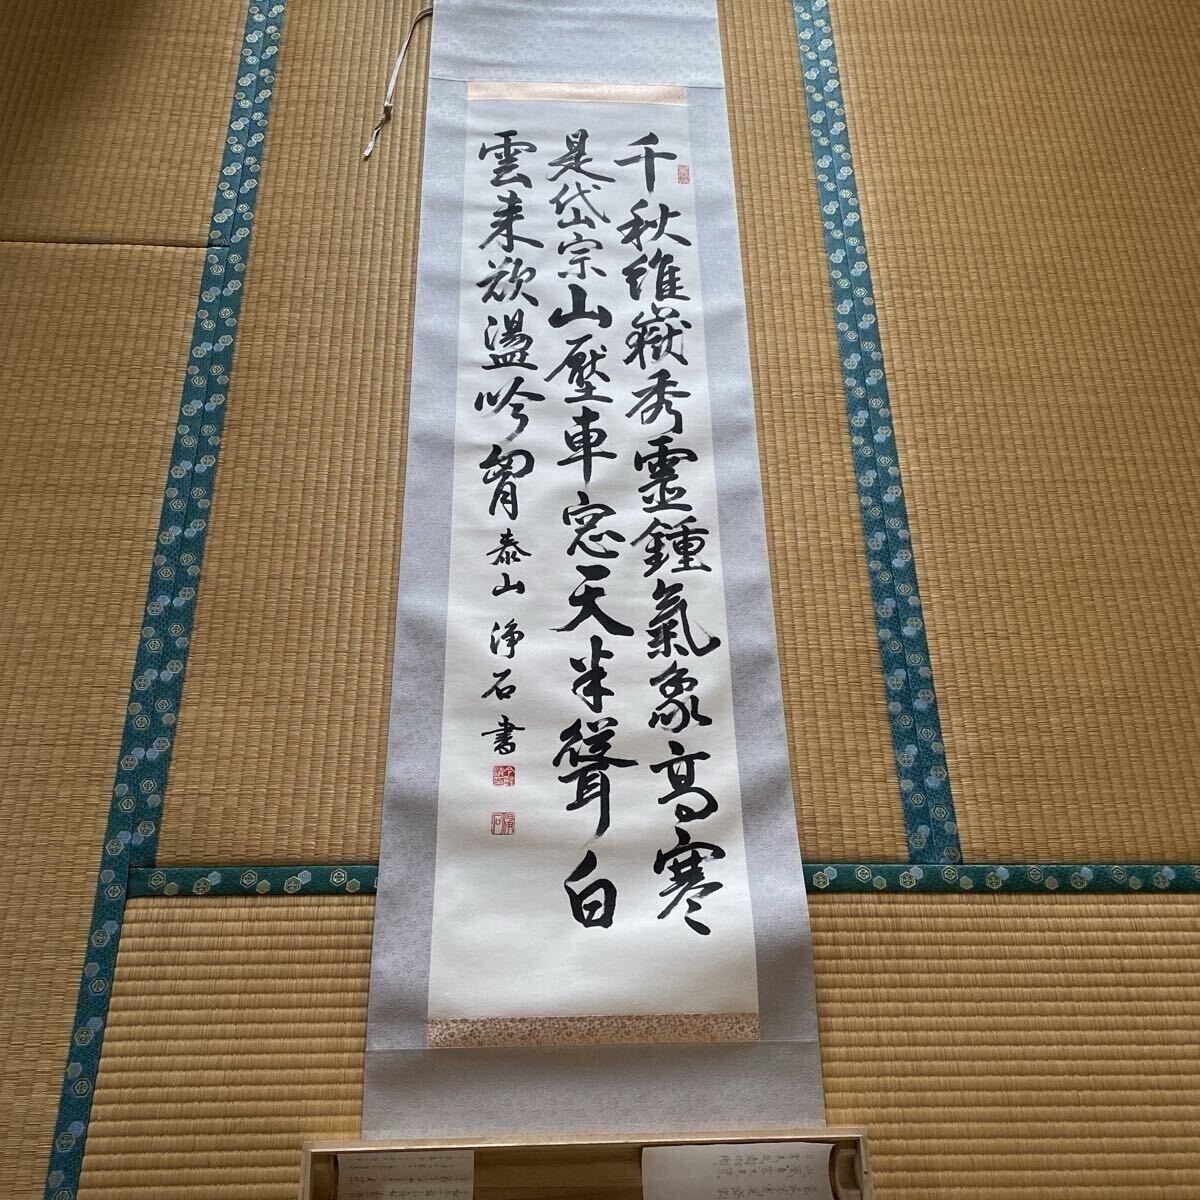 千秋維嶽秀靈鍾氣象高寒
是岱宗山壓車窓天半聳白
雲来欲盪吟胷泰山淨石書